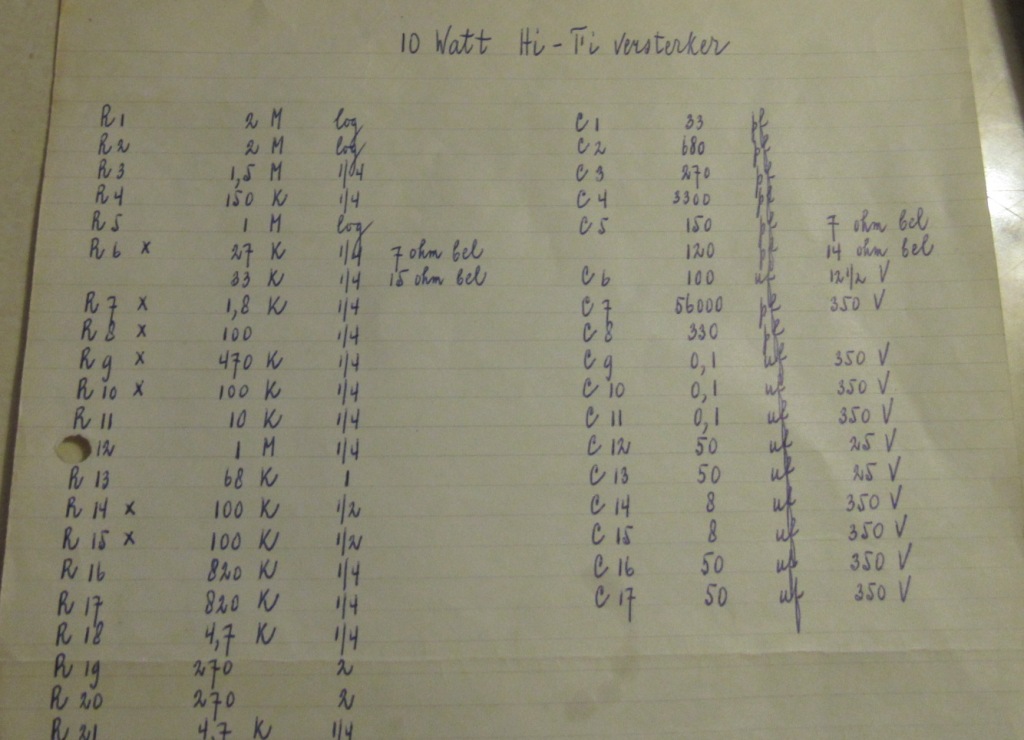 10 Watt Hi-Fi versterker
R 1 2 M log C 1 33 pf
R 2 2 M log C 2 680 pf
R 3 1,5 M 1/4 C 3 270 pf
R 4 150 K 1/4 C 4 3300 pf
R 5 1 M log C 5 150 pf 7 ohm bel
R 6 x 27 K 1/4 7 ohm bel 120 pf 14 ohm bel
33 K 1/4 15 ohm bel C 6 100 uf 12 1/2 V
R 7 x 1,8 K 1/4 C 7 56000 pf 350 V
R 8 x 100 1/4 C 8 330 pf
R 9 x 470 K 1/4 C 9 0,1 uf 350 V
R 10 x 100 K 1/4 C 10 0,1 uf 350 V
R 11 10 K 1/4 C 11 0,1 uf 350 V
12 1 M 1/4 C 12 50 uf 25 V
R 13 68 K 1 C 13 50 uf 25 V
R 14 x 100 K 1/2 C 14 8 uf 350 V
R 15 x 100 K 1/2 C 15 8 uf 350 V
R 16 820 K 1/4 C 16 50 uf 350 V
R 17 820 K 1/4 C 17 50 uf 350 V
R 18 4,7 K 1/4
R 19 270 2
R 20 270 2
R 21 4,7 K 1/4